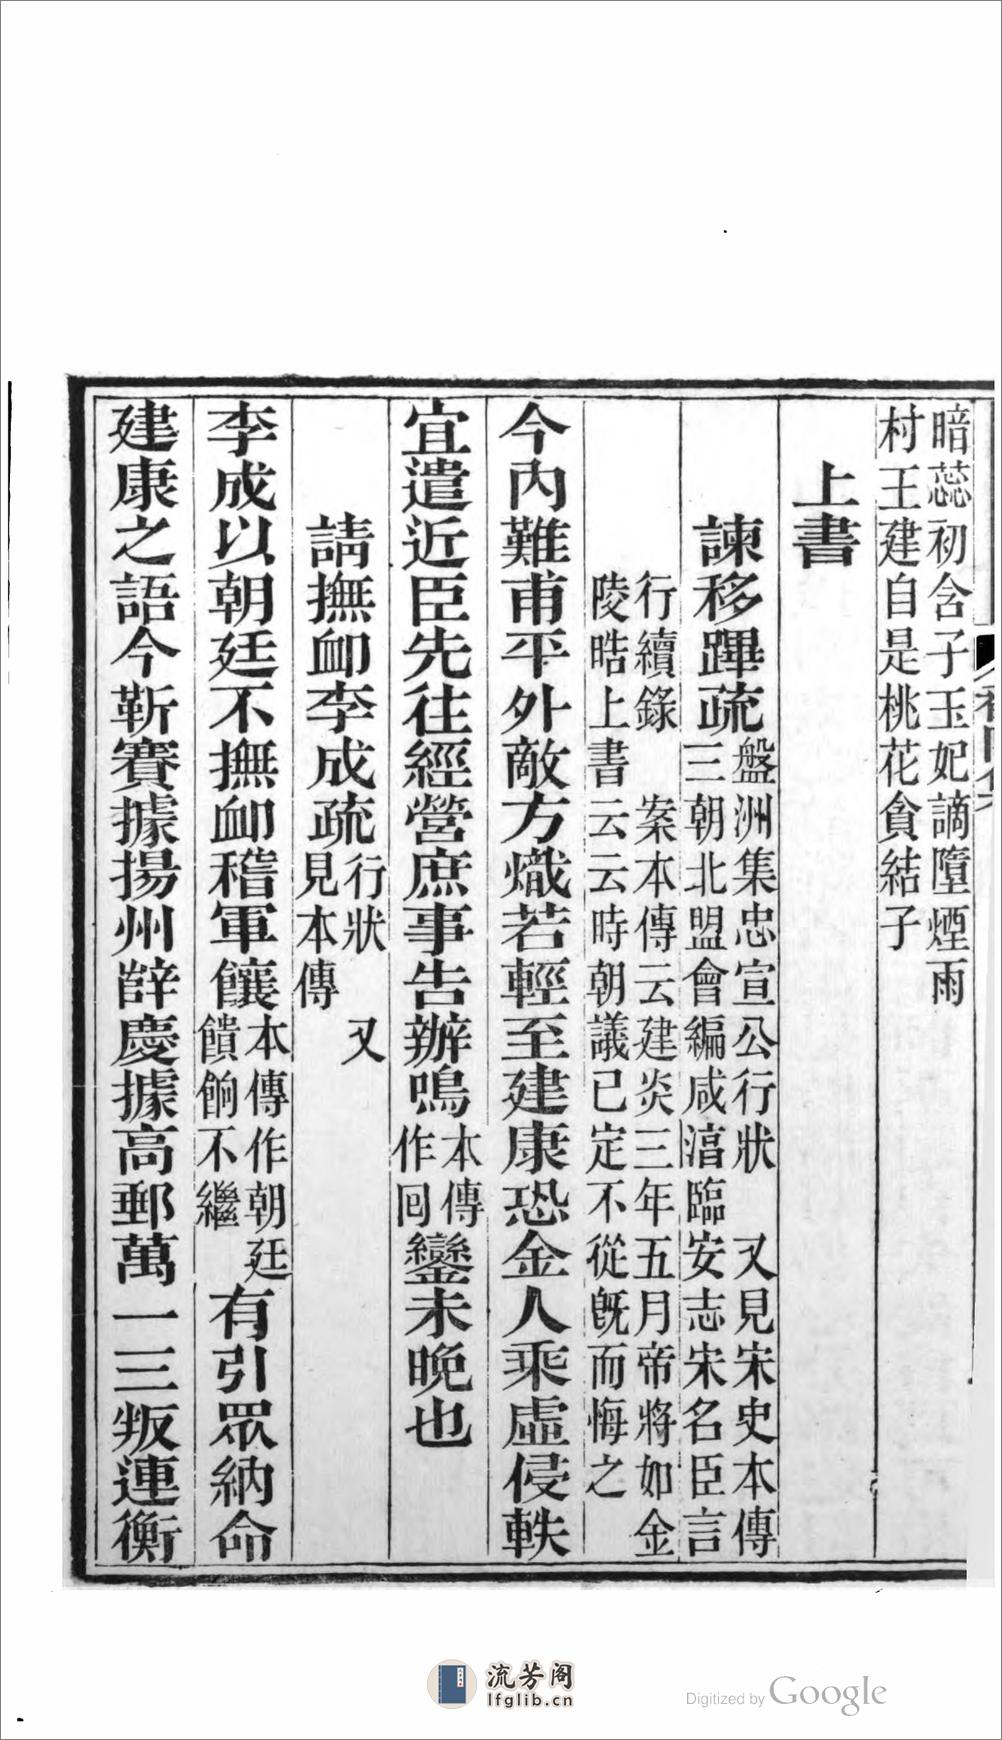 暗蕊初含子玉妃謫墮煙雨
村王建自是桃花貪結子
上書
諫移蹕疏盤洲集忠宣公行狀 又見宋史本傳
三朝北盟會編咸淳臨安志宋名臣言
行續錄 案本傳云建炎三年五月帝將如金
陵晧上書云云時朝議已定不從旣而悔之
今內難甫平外敵方熾若輕至建康恐金人乘虛侵軼
宜遣近臣先往經營庶事告辦鳴本傳作回鑾未晩也
請撫卹李成疏行狀 又見本傳
李成以朝廷不撫卹稽軍饟本傳作朝廷饋餉不繼有引眾納命
建康之語今靳賽據揚州薛慶據高郵萬一三叛連衡
流芳阁
lfglib.cn
Digitized by Google